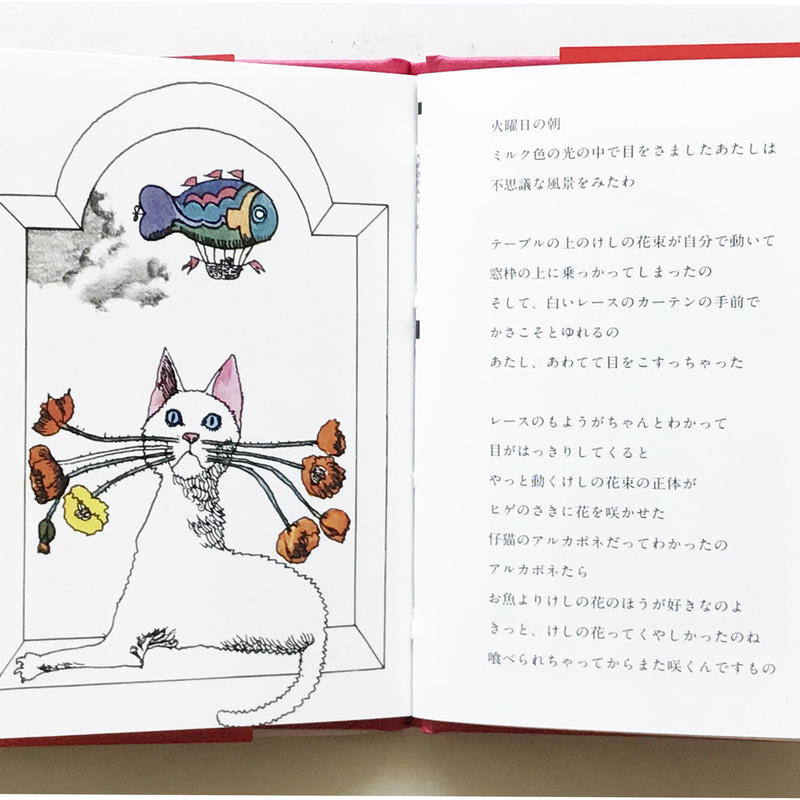 火曜日の朝
ミルク色の光の中で目をさましたあたしは
不思議な風景をみたわ
テーブルの上のけしの花束が自分で動いて
窓枠の上に乗っかってしまったの
そして、白いレースのカーテンの手前で
かさこそとゆれるの
あたし、あわてて目をこすっちゃった
レースのもようがちゃんとわかって
目がはっきりしてくると
やっと動くけしの花束の正体が
ヒゲのさきに花を咲かせた
仔猫のアルカポネだってわかったの
アルカポネたら
お魚よりけしの花のほうが好きなのよ
きっと、けしの花ってくやしかったのね
喰べられちゃってからまた咲くんですもの